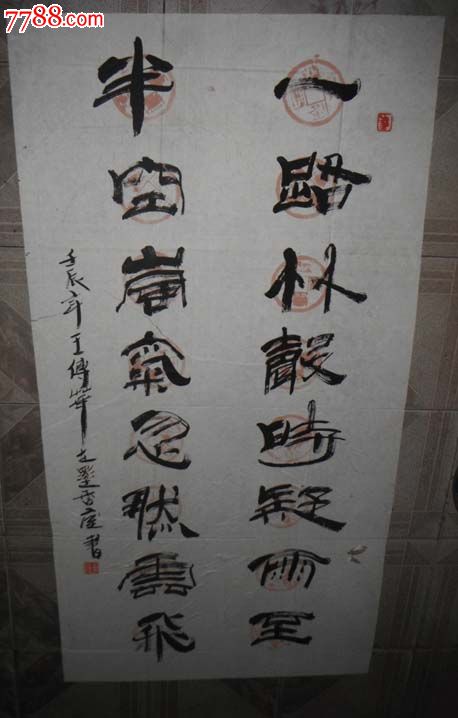 7788.com
一路林聲時疑雨至
半空嵐氣忽然雲飛
壬辰年王傳華 墨香 書